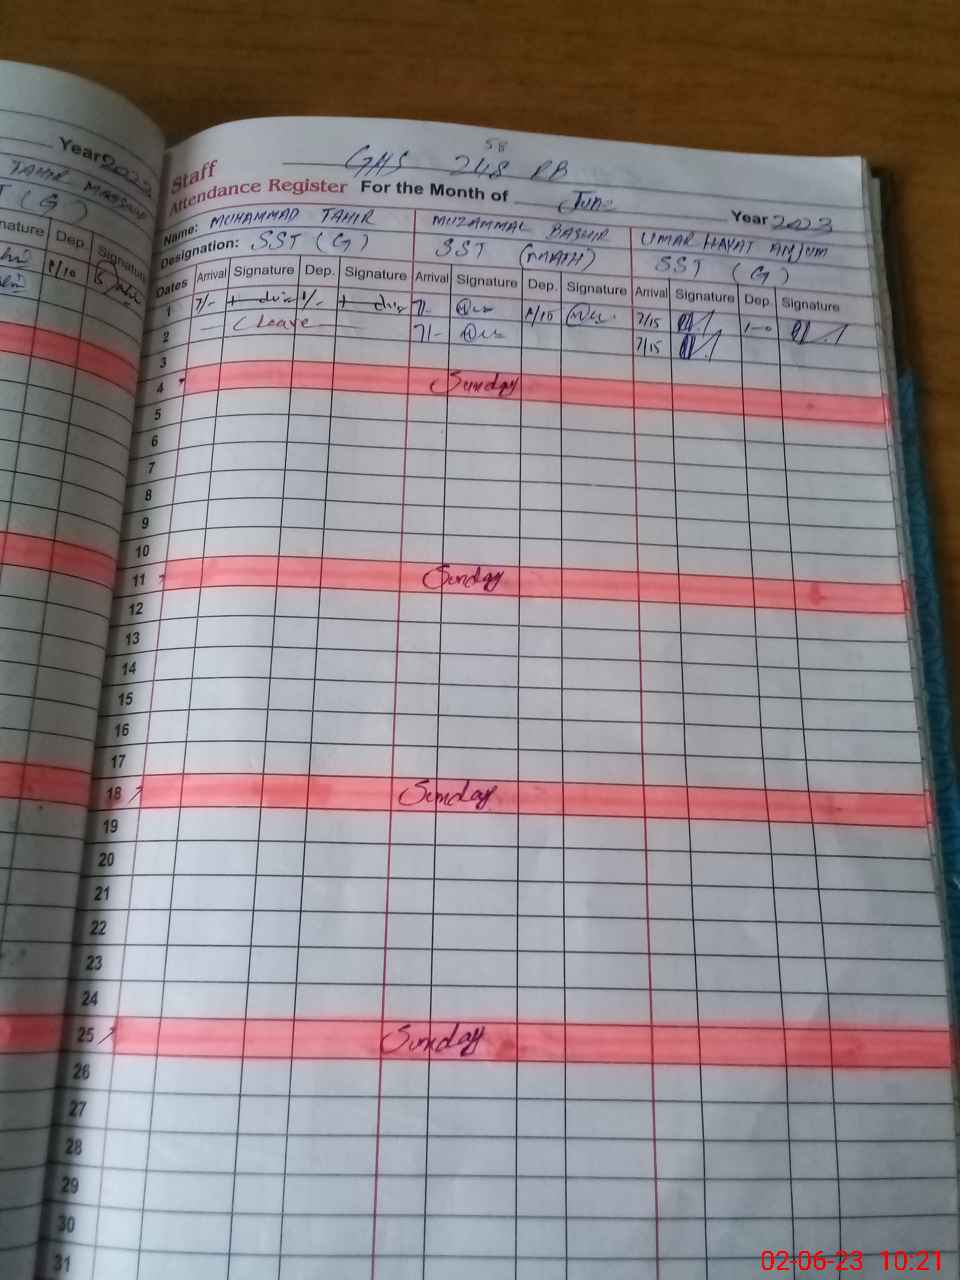 Year 2023
TAHIR
(G)
Signature Dep. Signature
1/10
58
GHS 248 RB
Staff
Attendance Register For the Month of June Year 2023
Name: MUHAMMAD TAHIR MUZAMMAL BASHIR UMAR HAYAT ANJUM
Designation: SST (G) SST (MATH) SST (G)
Dates Arrival Signature Dep. Signature Arrival Signature Dep. Signature Arrival Signature Dep. Signature
1 7/- 1/- 7/- 1/10 7/15 1-0
2 Leave 7/- 7/15
3
4 Sunday
5
6
7
8
9
10
11 Sunday
12
13
14
15
16
17
18 Sunday
19
20
21
22
23
24
25 Sunday
26
27
28
29
30
31
02-06-23 10:21